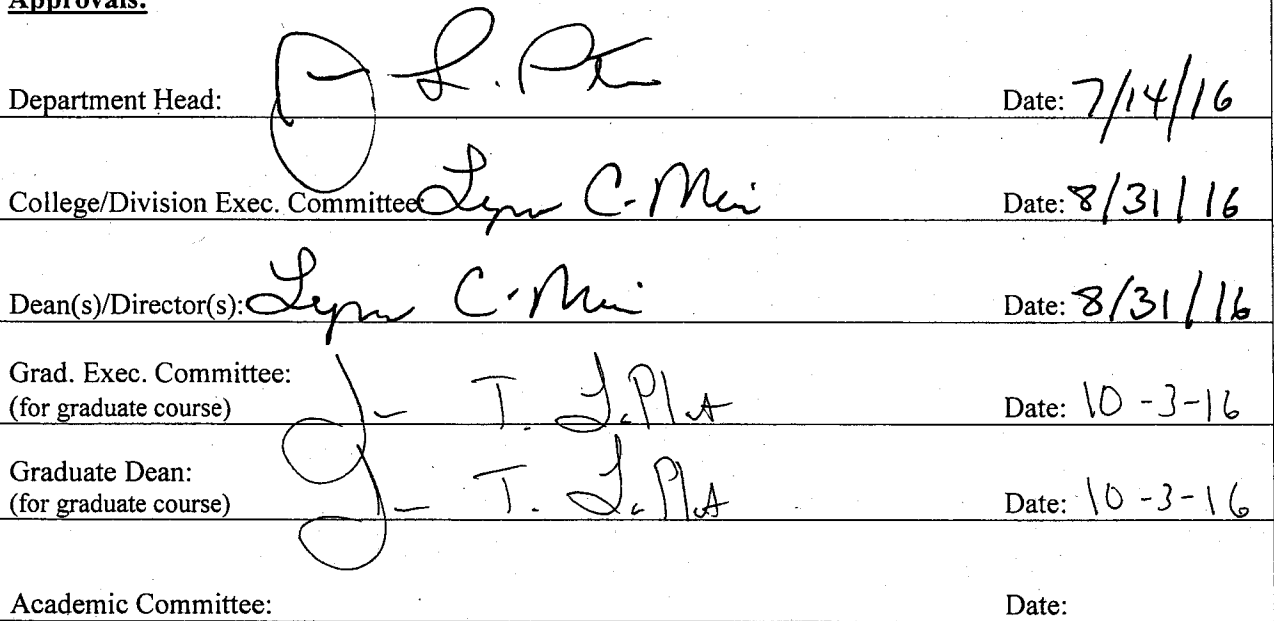 Approvals:
Department Head: L. Date: 7/14/16
College/Division Exec. Committee: Lynn C. Date: 8/31/16
Dean(s)/Director(s): Lynn C. Date: 8/31/16
Grad. Exec. Committee:
(for graduate course) T. Date: 10-3-16
Graduate Dean:
(for graduate course) T. Date: 10-3-16
Academic Committee: Date: